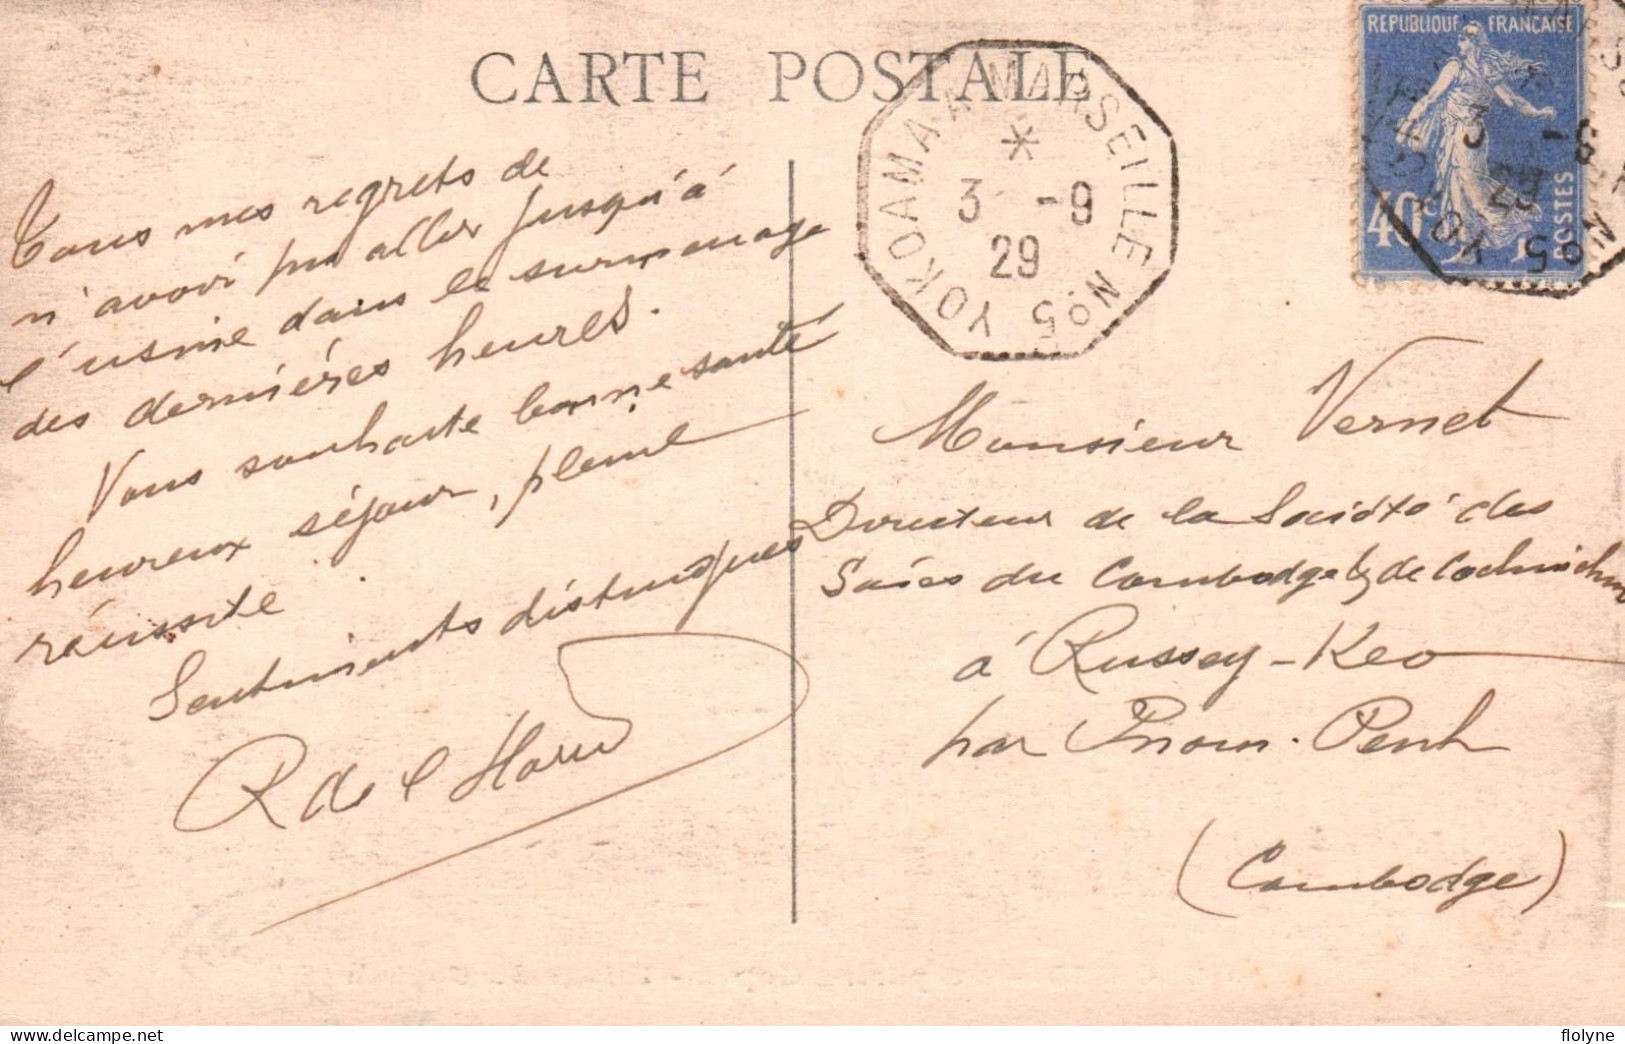 CARTE POSTALE
YOKOAMA A MARSEILLE No5
3 -9
29
REPUBLIQUE FRANCAISE
40c
POSTES
3 -9
29
Tous mes regrets de
n'avoir pu aller jusqu'à
l'usine dans le surmenage
des dernières heures.
Vous souhaite bonne santé
heureux séjour, pleine
réussite
Sentiments distingués
R de l
Monsieur Vernet
Directeur de la Société des
Soies du Cambodge & de Cochinchine
à Russey-Keo
par Pnom-Penh
(Cambodge)
flolyne